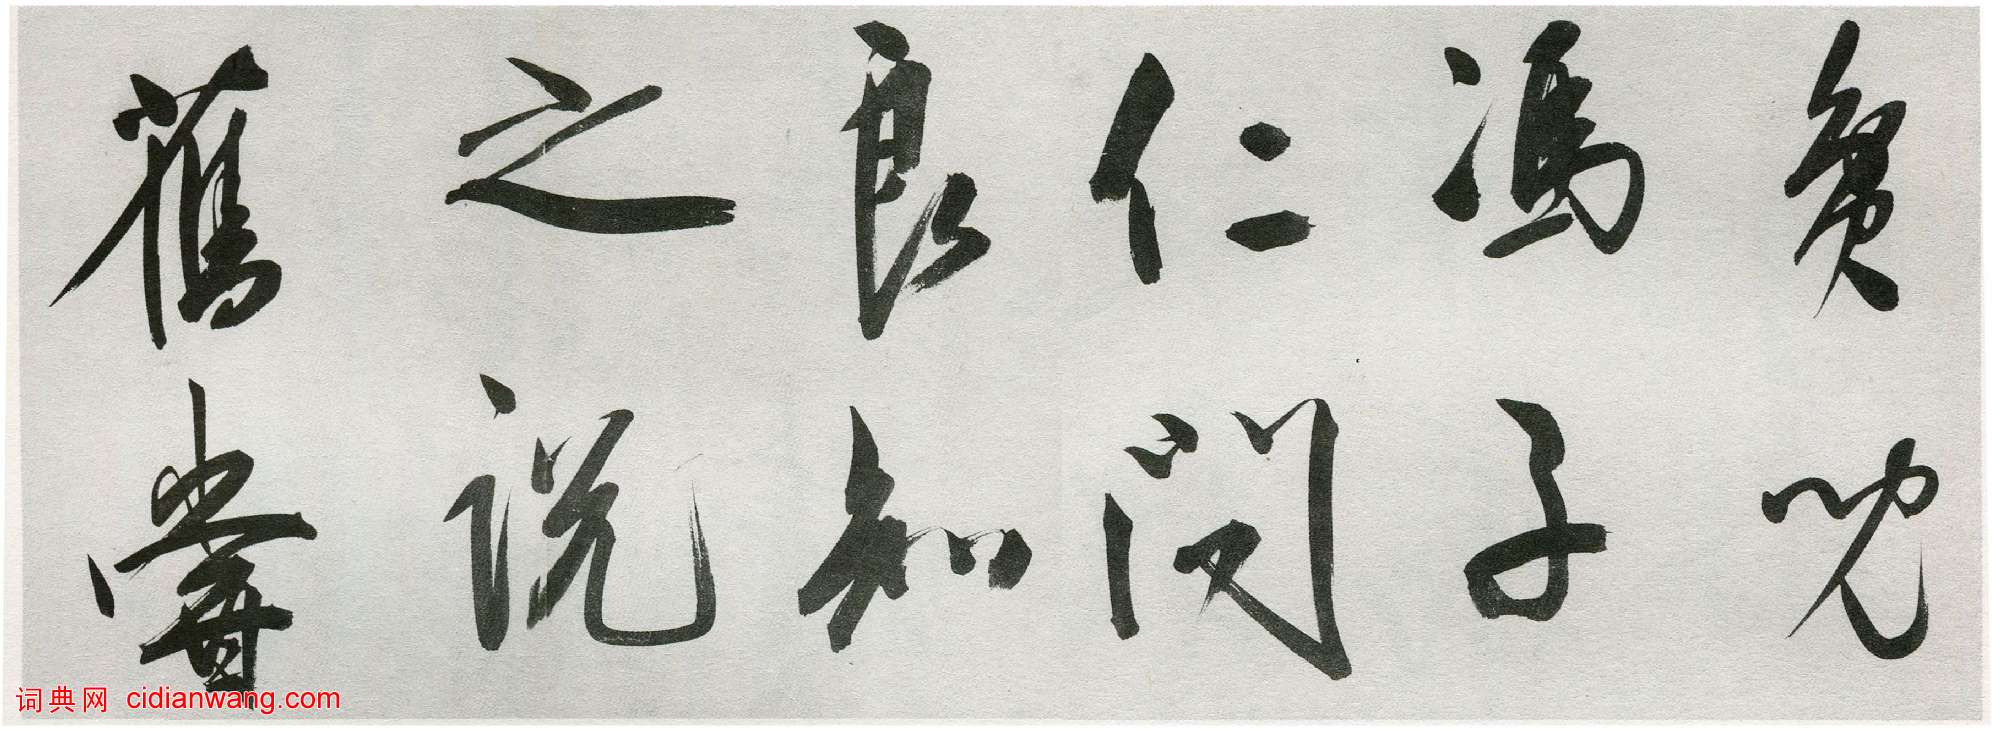 貧兒
馮子
仁問
良知
之說
舊嘗
词典网 cidianwang.com